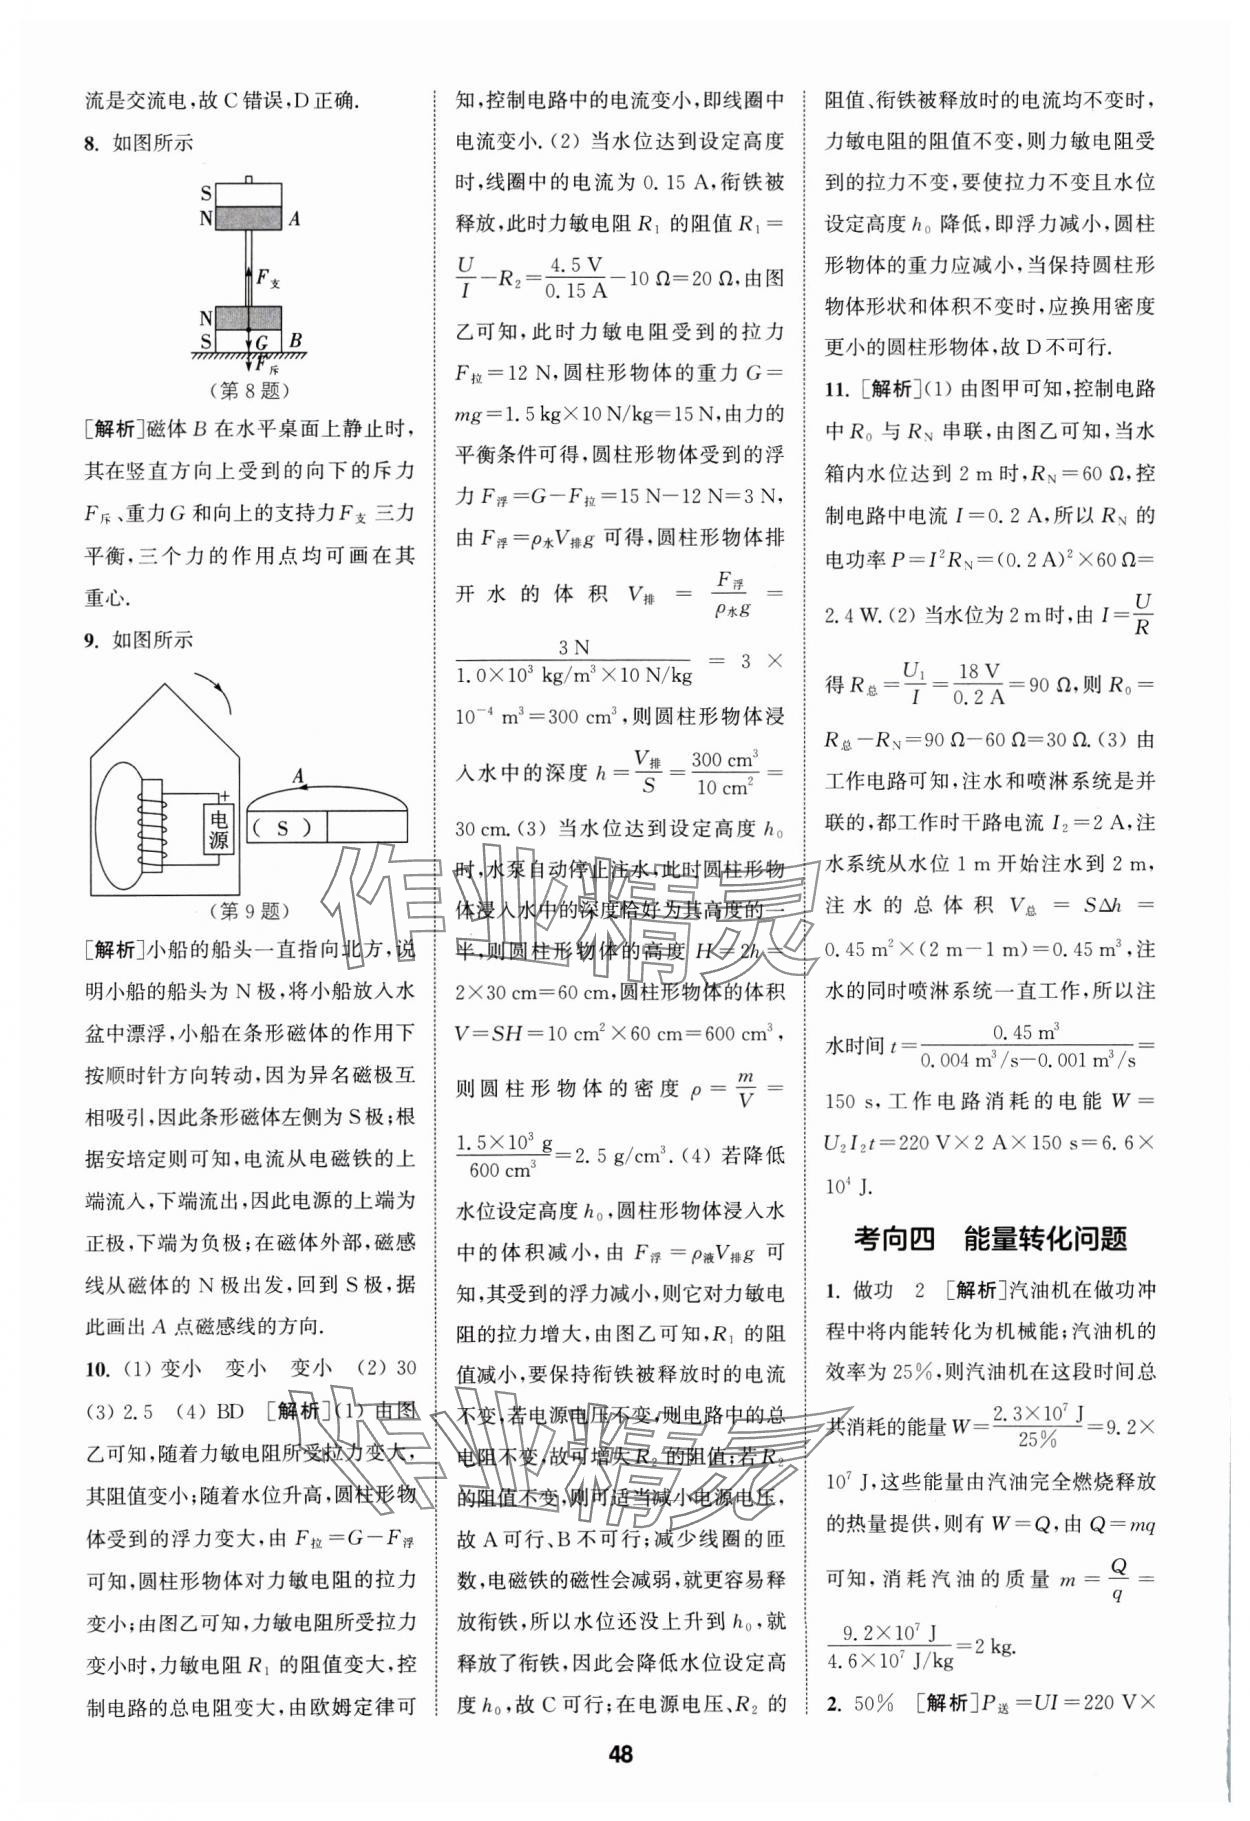 流是交流电,故 C 错误,D 正确.
8. 如图所示
S
N
A
F支
N
S
G
B
F斥
(第 8 题)
[解析]磁体 B 在水平桌面上静止时,
其在竖直方向上受到的向下的斥力
F斥、重力 G 和向上的支持力 F支 三力
平衡,三个力的作用点均可画在其
重心.
9. 如图所示
A
+
电源
( S )
(第 9 题)
[解析]小船的船头一直指向北方,说
明小船的船头为 N 极,将小船放入水
盆中漂浮,小船在条形磁体的作用下
按顺时针方向转动,因为异名磁极互
相吸引,因此条形磁体左侧为 S 极;根
据安培定则可知,电流从电磁铁的上
端流入,下端流出,因此电源的上端为
正极,下端为负极;在磁体外部,磁感
线从磁体的 N 极出发,回到 S 极,据
此画出 A 点磁感线的方向.
10. (1) 变小 变小 变小 (2) 30
(3) 2.5 (4) BD [解析](1) 由图
乙可知,随着力敏电阻所受拉力变大,
其阻值变小;随着水位升高,圆柱形物
体受到的浮力变大,由 F拉=G-F浮
可知,圆柱形物体对力敏电阻的拉力
变小;由图乙可知,力敏电阻所受拉力
变小时,力敏电阻 R₁ 的阻值变大,控
制电路的总电阻变大,由欧姆定律可
知,控制电路中的电流变小,即线圈中
电流变小.(2) 当水位达到设定高度
时,线圈中的电流为 0.15 A,衔铁被
释放,此时力敏电阻 R₁ 的阻值 R₁=
U/I-R₂=4.5 V/0.15 A-10 Ω=20 Ω,由图
乙可知,此时力敏电阻受到的拉力
F拉=12 N,圆柱形物体的重力 G=
mg=1.5 kg×10 N/kg=15 N,由力的
平衡条件可得,圆柱形物体受到的浮
力 F浮=G-F拉=15 N-12 N=3 N,
由 F浮=ρ水V排g 可得,圆柱形物体排
开水的体积 V排 = F浮/ρ水g =
3 N/1.0×10³ kg/m³×10 N/kg = 3 ×
10⁻⁴ m³=300 cm³,则圆柱形物体浸
入水中的深度 h=V排/S=300 cm³/10 cm²=
30 cm.(3) 当水位达到设定高度 h₀
时,水泵自动停止注水,此时圆柱形物
体浸入水中的深度恰好为其高度的一
半,则圆柱形物体的高度 H=2h=
2×30 cm=60 cm,圆柱形物体的体积
V=SH=10 cm²×60 cm=600 cm³,
则圆柱形物体的密度 ρ=m/V=
1.5×10³ g/600 cm³=2.5 g/cm³.(4) 若降低
水位设定高度 h₀,圆柱形物体浸入水
中的体积减小,由 F浮=ρ液V排g 可
知,其受到的浮力减小,则它对力敏电
阻的拉力增大,由图乙可知,R₁ 的阻
值减小,要保持衔铁被释放时的电流
不变,若电源电压不变,则电路中的总
电阻不变,故可增大 R₂ 的阻值;若 R₂
的阻值不变,则可适当减小电源电压,
故 A 可行、B 不可行;减少线圈的匝
数,电磁铁的磁性会减弱,就更容易释
放衔铁,所以水位还没上升到 h₀,就
释放了衔铁,因此会降低水位设定高
度 h₀,故 C 可行;在电源电压、R₂ 的
阻值、衔铁被释放时的电流均不变时,
力敏电阻的阻值不变,则力敏电阻受
到的拉力不变,要使拉力不变且水位
设定高度 h₀ 降低,即浮力减小,圆柱
形物体的重力应减小,当保持圆柱形
物体形状和体积不变时,应换用密度
更小的圆柱形物体,故 D 不可行.
11. [解析](1) 由图甲可知,控制电路
中 R₀ 与 R_N 串联,由图乙可知,当水
箱内水位达到 2 m 时,R_N=60 Ω,控
制电路中电流 I=0.2 A,所以 R_N 的
电功率 P=I²R_N=(0.2 A)²×60 Ω=
2.4 W.(2) 当水位为 2 m 时,由 I=U/R
得 R总=U₁/I=18 V/0.2 A=90 Ω,则 R₀=
R总-R_N=90 Ω-60 Ω=30 Ω.(3) 由
工作电路可知,注水和喷淋系统是并
联的,都工作时干路电流 I₂=2 A,注
水系统从水位 1 m 开始注水到 2 m,
注水的总体积 V总 = SΔh =
0.45 m²×(2 m-1 m)=0.45 m³,注
水的同时喷淋系统一直工作,所以注
水时间 t=0.45 m³/0.004 m³/s-0.001 m³/s=
150 s,工作电路消耗的电能 W=
U₂I₂t=220 V×2 A×150 s=6.6×
10⁴ J.
考向四 能量转化问题
1. 做功 2 [解析]汽油机在做功冲
程中将内能转化为机械能;汽油机的
效率为 25%,则汽油机在这段时间总
共消耗的能量 W=2.3×10⁷ J/25%=9.2×
10⁷ J,这些能量由汽油完全燃烧释放
的热量提供,则有 W=Q,由 Q=mq
可知,消耗汽油的质量 m=Q/q=
9.2×10⁷ J/4.6×10⁷ J/kg=2 kg.
2. 50% [解析]P送=UI=220 V×
48
作业精灵
作业精灵